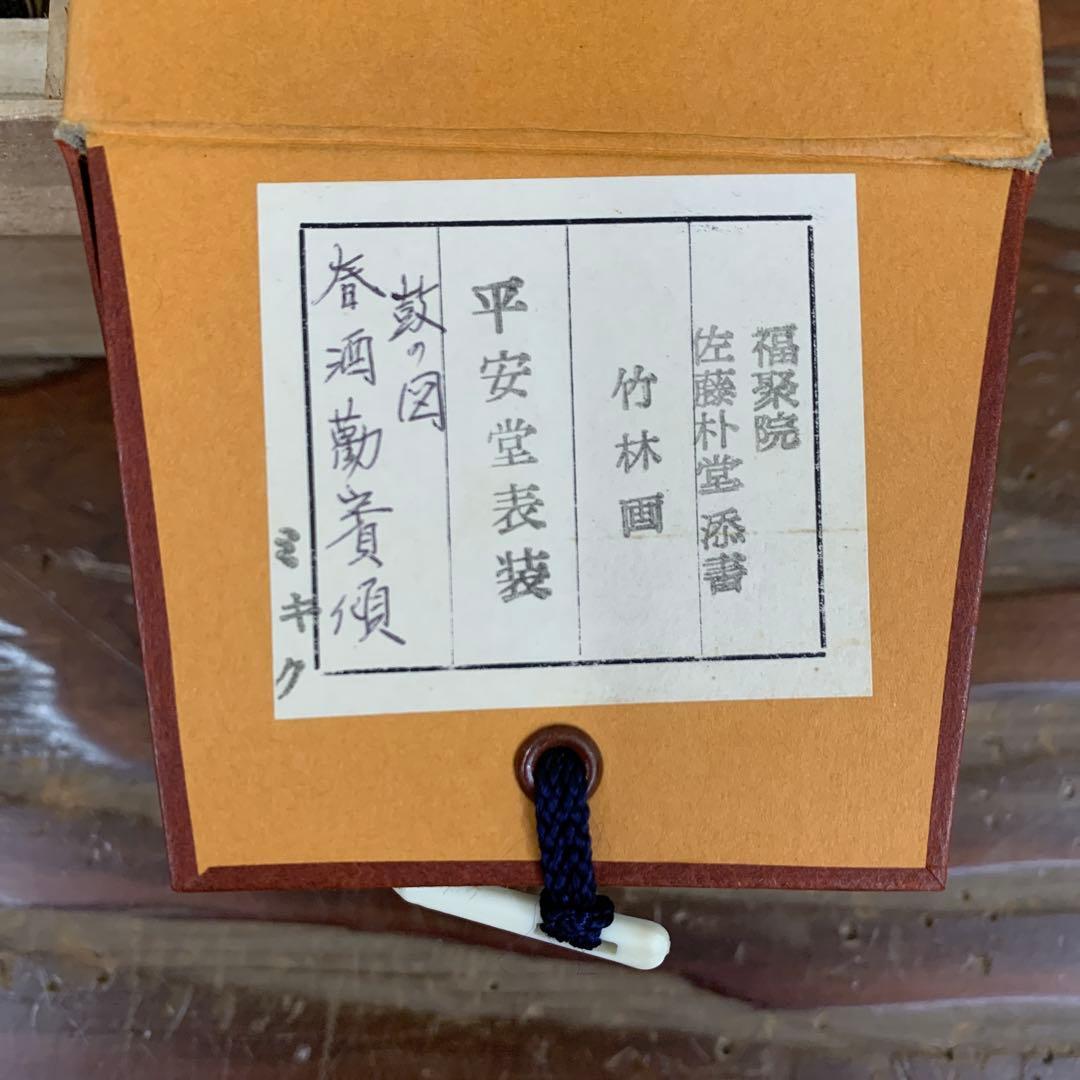 福聚院
左藤朴堂 添書
竹林画
平安堂表装
鼓の図
春酒勸賓傾
ミキク